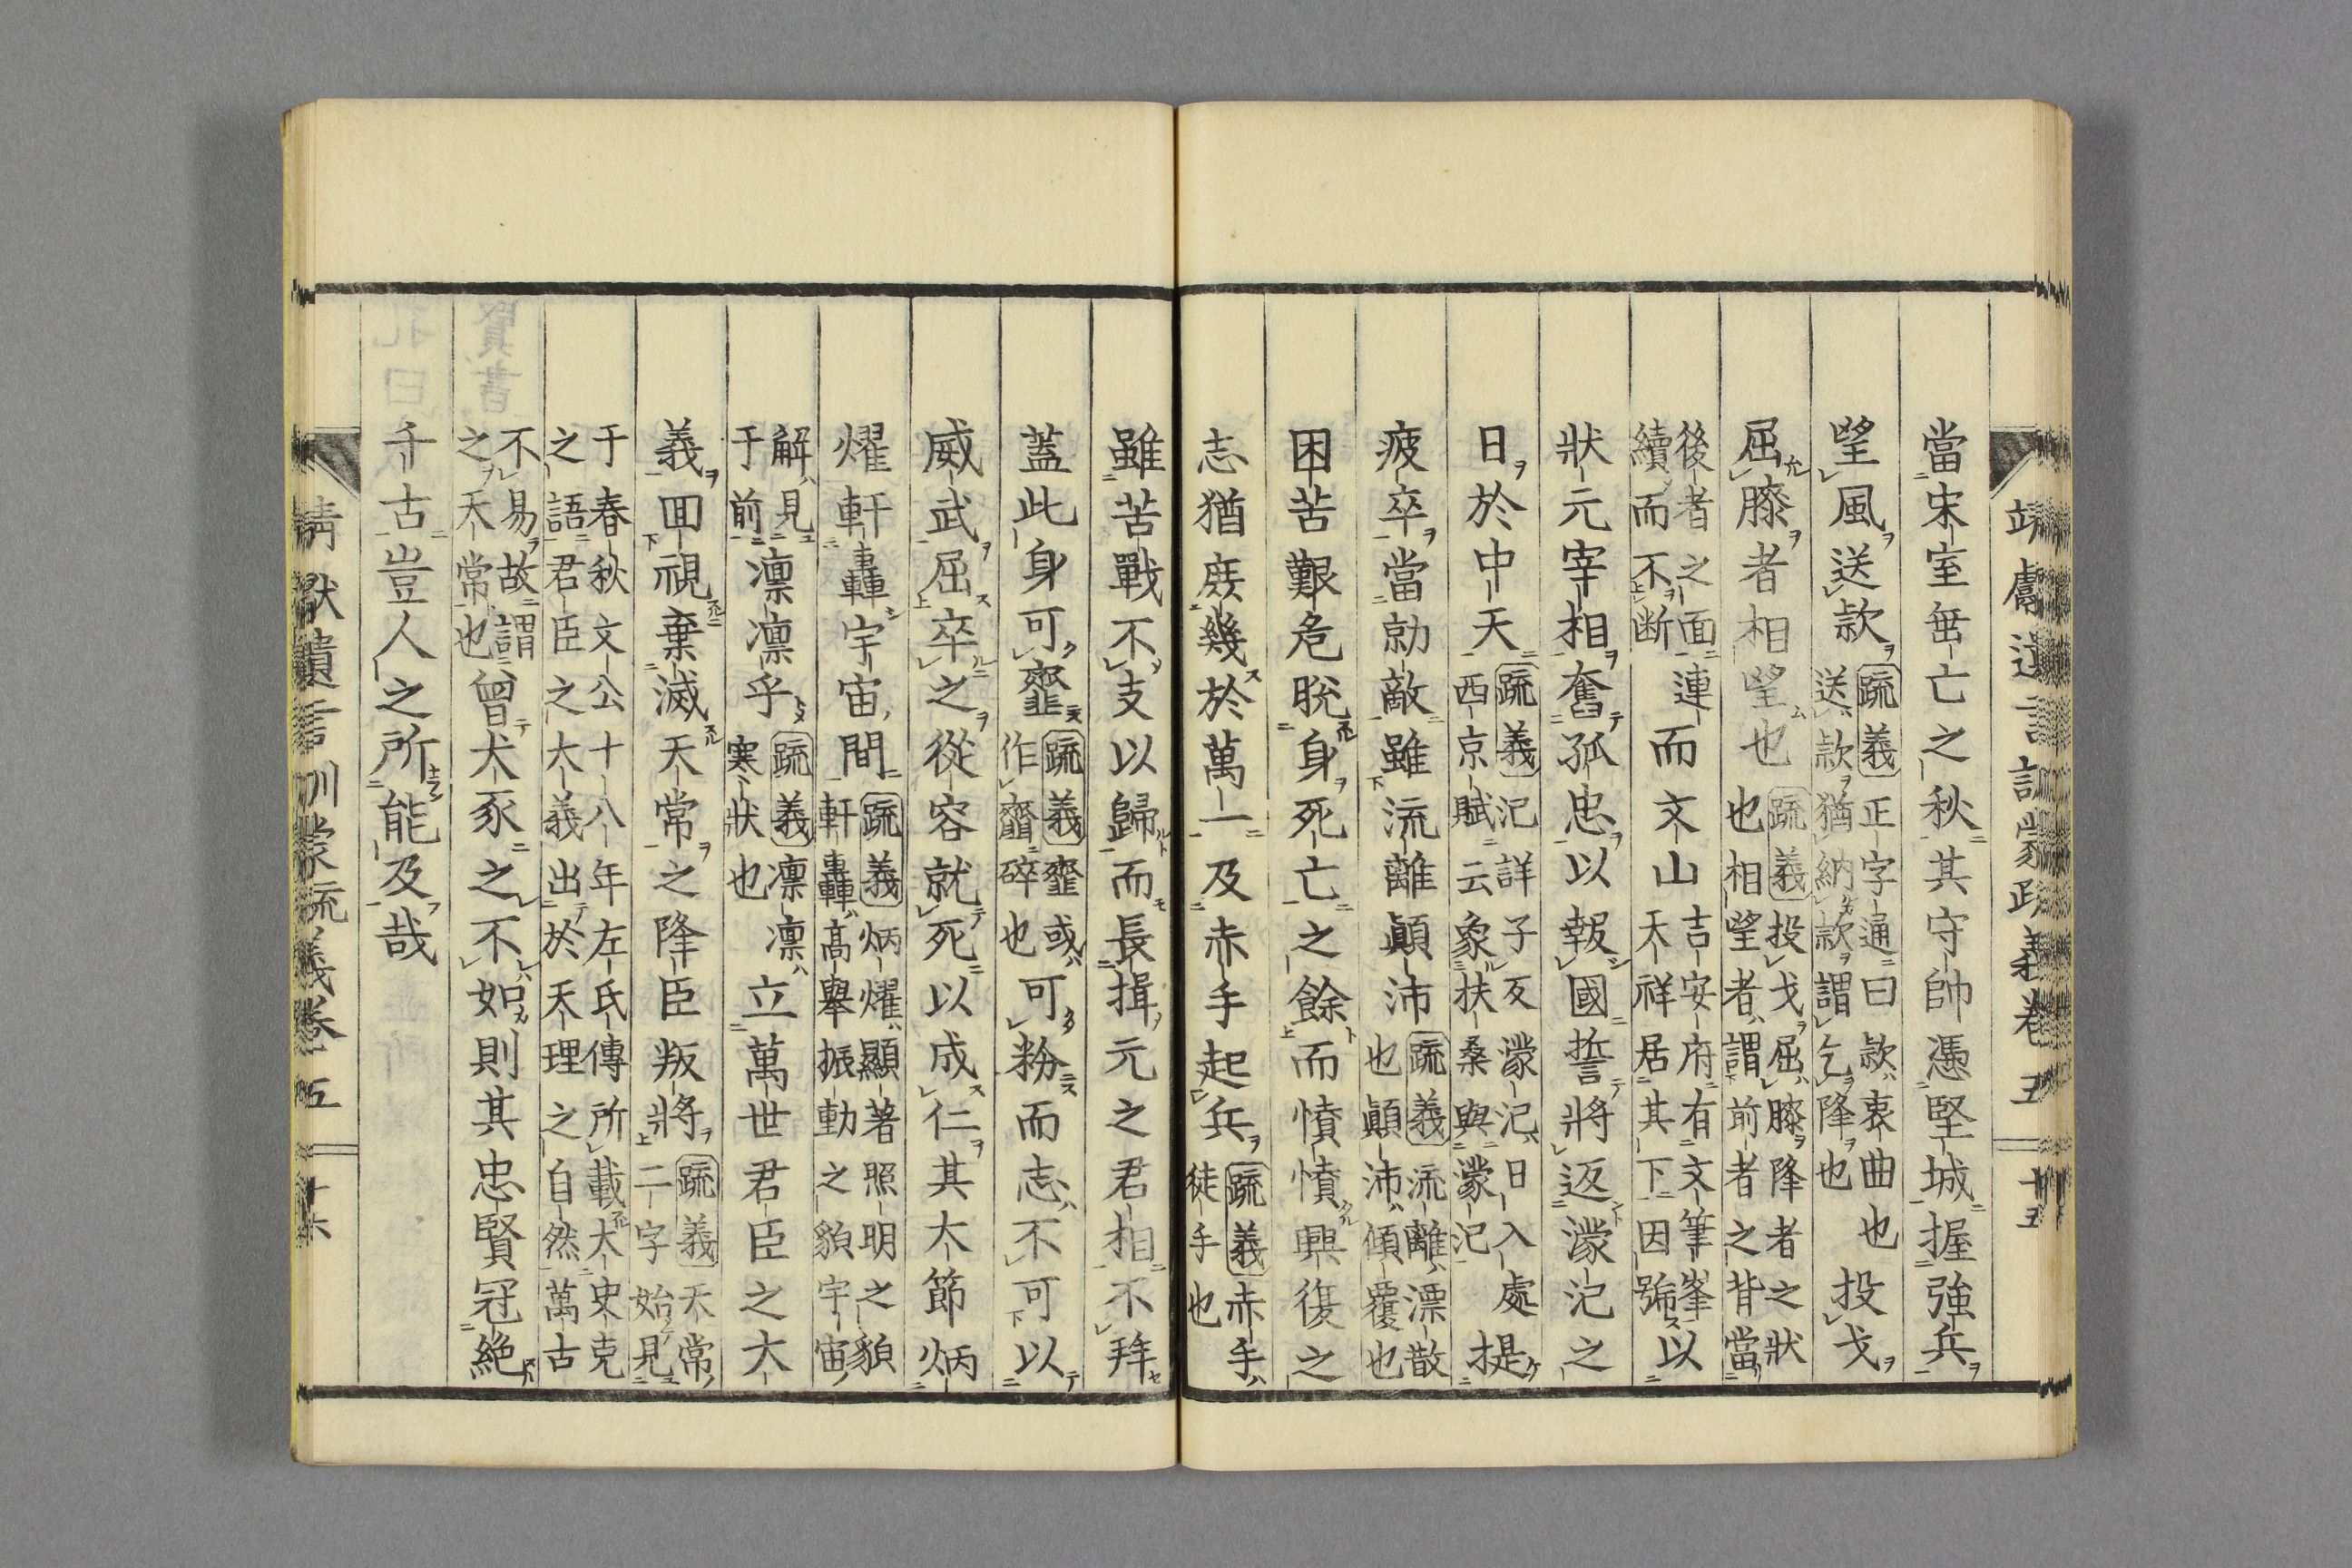 當宋室無亡之秋其守帥憑堅城握強兵
望風送款疏義正字通曰款衷曲也送款猶納款謂乞降也投戈
屈膝者相望也疏義投戈屈膝降者之狀也相望者謂前者之背當
後者之面連續而不断而文山吉安府有文筆峯天祥居其下因號以
狀元宰相奮孤忠以報國誓將返濛汜之
日於中天疏義汜詳子反濛汜日入處西京賦云象扶桑與濛汜提
疲卒當勍敵雖流離顛沛疏義流離漂散也顛沛傾覆也
困苦艱危脫身死亡之餘而憤憤興復之
志猶庶幾於萬一及赤手起兵疏義赤手徒手也
雖苦戰不支以歸而長揖元之君相不拜
蓋此身可韲疏義韲或作齏碎也可粉而志不可以
威武屈卒之從容就死以成仁其大節炳
燿軒轟宇宙間疏義炳燿顯著照明之貌軒轟高舉振動之貌宇宙
解見于前凛凛乎疏義凛凛寒狀也立萬世君臣之大
義回視棄滅天常之降臣叛將疏義天常二字始見
于春秋文公十八年左氏傳所載大史克之語君臣之大義出於天理之自然萬古
不易故謂之天常也曾犬豕之不如則其忠賢冠絶
千古豈人之所能及哉